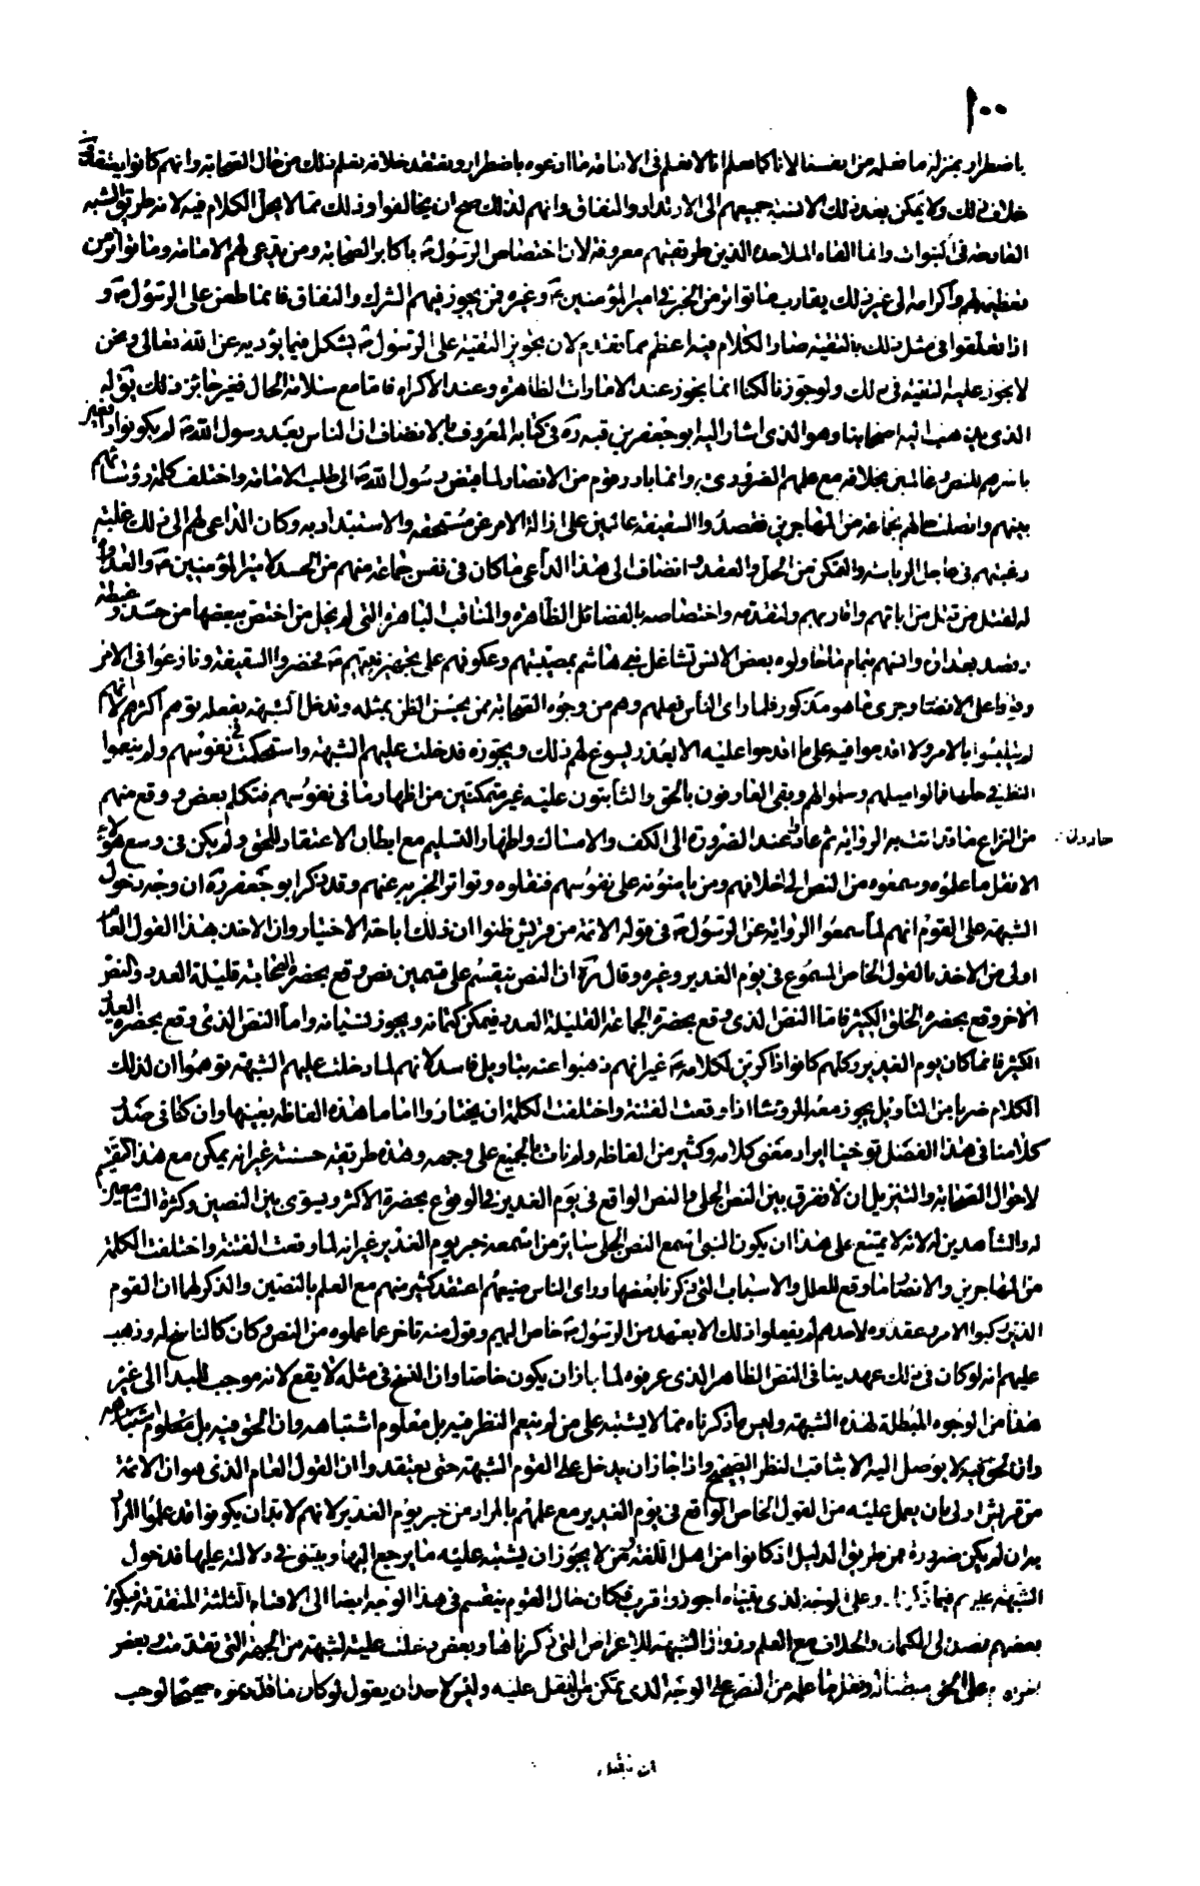 ١٠٠
باضطرار بمنزلة ما نعلمه من انفسنا لانا كما نعلم انا لا نعلم في الامامة ما ادعوه باضطرار ونعتقد خلافه نعلم ذلك من حال الصحابة وانهم كانوا يعتقدون
خلاف ذلك ولا يمكن بعد ذلك الا نسبة جميعهم الى الارتداد والنفاق وانهم لذلك صح ان يخالفوا وذلك مما لا يحل الكلام فيه لانه طريق الشبه
القادحة في النبوات وانما القاه الملاحدة الذين طريقتهم معروفة لان اختصاص الرسول ص باكابر الصحابة ومن يدعي لهم الامامة وما تواتر من
تعظيمه لهم واكرامه الى غير ذلك يقارب ما تواتر من الخبر في امير المؤمنين ع وغيره فمن يجوز فيهم الشرك والنفاق فانما طعن على الرسول ص و
اذا تعلقوا في مثل ذلك بالتقية صار الكلام فيه اعظم مما تقدم لان تجويز التقية على الرسول ص يشكل فيما يؤديه عن الله تعالى ونحن
لا يجوز عليه التقية في ذلك ولو جوزنا لكنا انما يجوز عند الامارات الظاهرة وعند الاكراه فاما مع سلامة الحال فغير جائز ذلك قوله
الذي يذهب اليه اصحابنا وهو الذي اشار اليه ابو جعفر بن قبه ره في كتابه المعروف بالانصاف ان الناس بعد رسول الله ص لم يكونوا دافعين
باسرهم للنص عاملين بخلافه مع علمهم الضروري به وانما بادر قوم من الانصار لما قبض رسول الله ص الى طلب الامامة واختلف كلمة رؤسائهم
بينهم واتصلت حالهم بجماعة من المهاجرين فقصدوا السقيفة عاملين على ازالة الامر عن مستحقه والاستبداد به وكان الداعي لهم الى ذلك غلبة
رغبتهم في عاجل الرياسة والتمكن من الحل والعقد وانضاف الى هذا الداعي ما كان في نفس جماعة منهم من الحسد لامير المؤمنين ع والعداوة
له لقتل من قتل من ابائهم واقاربهم ولتقدمه واختصاصه بالفضائل الظاهرة والمناقب الباهرة التي لم يخل من اختص ببعضها من حسد وغبطة
وقصد بعداوة وانسهم بتمام ما حاولوه بعض الانس تشاغل بني هاشم بمصيبتهم وعكوفهم على تجهيز نبيهم ص فحضروا السقيفة ونازعوا في الامر
وقووا على الانصار وجرى ما هو مذكور فلما راى الناس فعلهم وهم من وجوه الصحابة ممن يحسن الظن بمثله وتدخل الشبهة بفعله توهم اكثرهم انهم
لم يتلبسوا بالامر ولا اقدموا فيه على ما اقدموا عليه الا بعذر يسوغ لهم ذلك ويجوزه فدخلت عليهم الشبهة واستحكمت في نفوسهم ولم ينعموا
النظر في حلها فمالوا ميلهم وسلموا لهم وبقي العارفون بالحق والثابتون عليه غير متمكنين من اظهار ما في نفوسهم فتكلم بعض ووقع منهم
من النزاع ما قد اتت به الرواية ثم عاد عند الضرورة الى الكف والامساك واظهار التسليم مع ابطان الاعتقاد للحق ولم يكن في وسع هؤلاء
الا نقل ما علموه وسمعوه من النص الى اخلافهم ومن يامنونه على نفوسهم فنقلوه وتواتر الخبر به عنهم وقد ذكر ابو جعفر ره ان وجه دخول
الشبهة على القوم انهم لما سمعوا الرواية عن الرسول ص في قوله الائمة من قريش ظنوا ان ذلك اباحة الاختيار وان الاخذ بهذا القول العام
اولى من الاخذ بالقول الخاص المسموع في يوم الغدير وغيره وقال ره ان النص ينقسم على قسمين نص وقع بحضرة الجماعة قليلة العدد والنص
الاخر وقع بحضرة الخلق الكثير فاما النص الذي وقع بحضرة الجماعة القليلة العدد فيمكن كتمانه ويجوز نسيانه واما النص الذي وقع بحضرة العدد
الكثير فانما كان يوم الغدير وكلهم كانوا ذاكرين لكلامه ص غير انهم ذهبوا عنه بتاويل فاسد لانهم لما دخلت عليهم الشبهة توهموا ان لذلك
الكلام ضربا من التاويل يجوز معه للرؤسا اذا وقعت الفتنة واختلفت الكلمة ان يختاروا اماما هذه الفاظه بعينها وان كنا في صدر
كلامنا في هذا الفصل توخينا ايراد معنى كلامه وكثير من الفاظه ولم نات بالجميع على وجهه وهذه طريقة حسنة غير انه يمكن مع هذا التقسيم
لاحوال الصحابة والتنزيل ان لا نفرق بين النص الجلي والنص الواقع في يوم الغدير في الوقوع بحضرة الاكثر ويسوى بين النصين وكثرة السامعين
له والشاهدين له لانه لا يمتنع على هذا ان يكون النبي اسمع النص الجلي سائر من اسمعه خبر يوم الغدير غير انه لما وقعت الفتنة واختلفت الكلمة
من المهاجرين والانصار ما وقع للعلل والاسباب التي ذكرنا بعضها وراى الناس صنيعهم اعتقد كثير منهم مع العلم بالنصين والذكر لهما ان القوم
الذين ركبوا الامر وعقدوه لاحدهم لم يفعلوا ذلك الا بعهد من الرسول ص خاص اليهم وقول منه تاخر عما علموه من النص وكان كالناسخ له وذهب
عليهم انه لو كان في ذلك عهد ينافي النص الظاهر الذي عرفوه لما جاز ان يكون خاصا وان النسخ في مثله لا يقع لانه موجب للبدا الى غير
هذا من الوجوه المبطلة لهذه الشبهة وليس ما ذكرناه مما لا يشتبه على من لم ينعم النظر فيه بل معلوم اشتباهه وان الحق فيه بل معلوم اشتباهه
وان الحق فيه لا يوصل اليه الا بثاقب النظر الصحيح واذا جاز ان يدخل على القوم الشبهة حتى يعتقدوا ان القول العام الذي هو ان الائمة
من قريش اولى بان يعمل عليه من القول الخاص الواقع في يوم الغدير مع علمهم بالمراد من خبر يوم الغدير لانهم لا بد ان يكونوا قد علموا المراد
به ان لم يكن ضرورة فمن طريق الدليل اذ كانوا من اهل اللغة وممن لا يجوز ان يشتبه عليه ما يرجع اليها ويبتنى في دلالته عليها فدخول
الشبهة عليهم فيما ذكرنا وعلى الوجه الذي بيناه اجوز واقرب فكان حال القوم ينقسم في هذا الوجه ايضا الى الاقسام الثلثة المتقدمة فيكون
بعضهم قصد الى الكتمان والخلاف مع العلم وزوال الشبهة للاعراض التي ذكرناها وبعض دخلت عليه الشبهة من الجهة التي تقدمت وبعض
على الحق ونقل ما علمه من النص على الوجه الذي تمكن من النقل عليه وليس لاحد ان يقول لو كان ما قلتموه صحيحا لوجب
ان